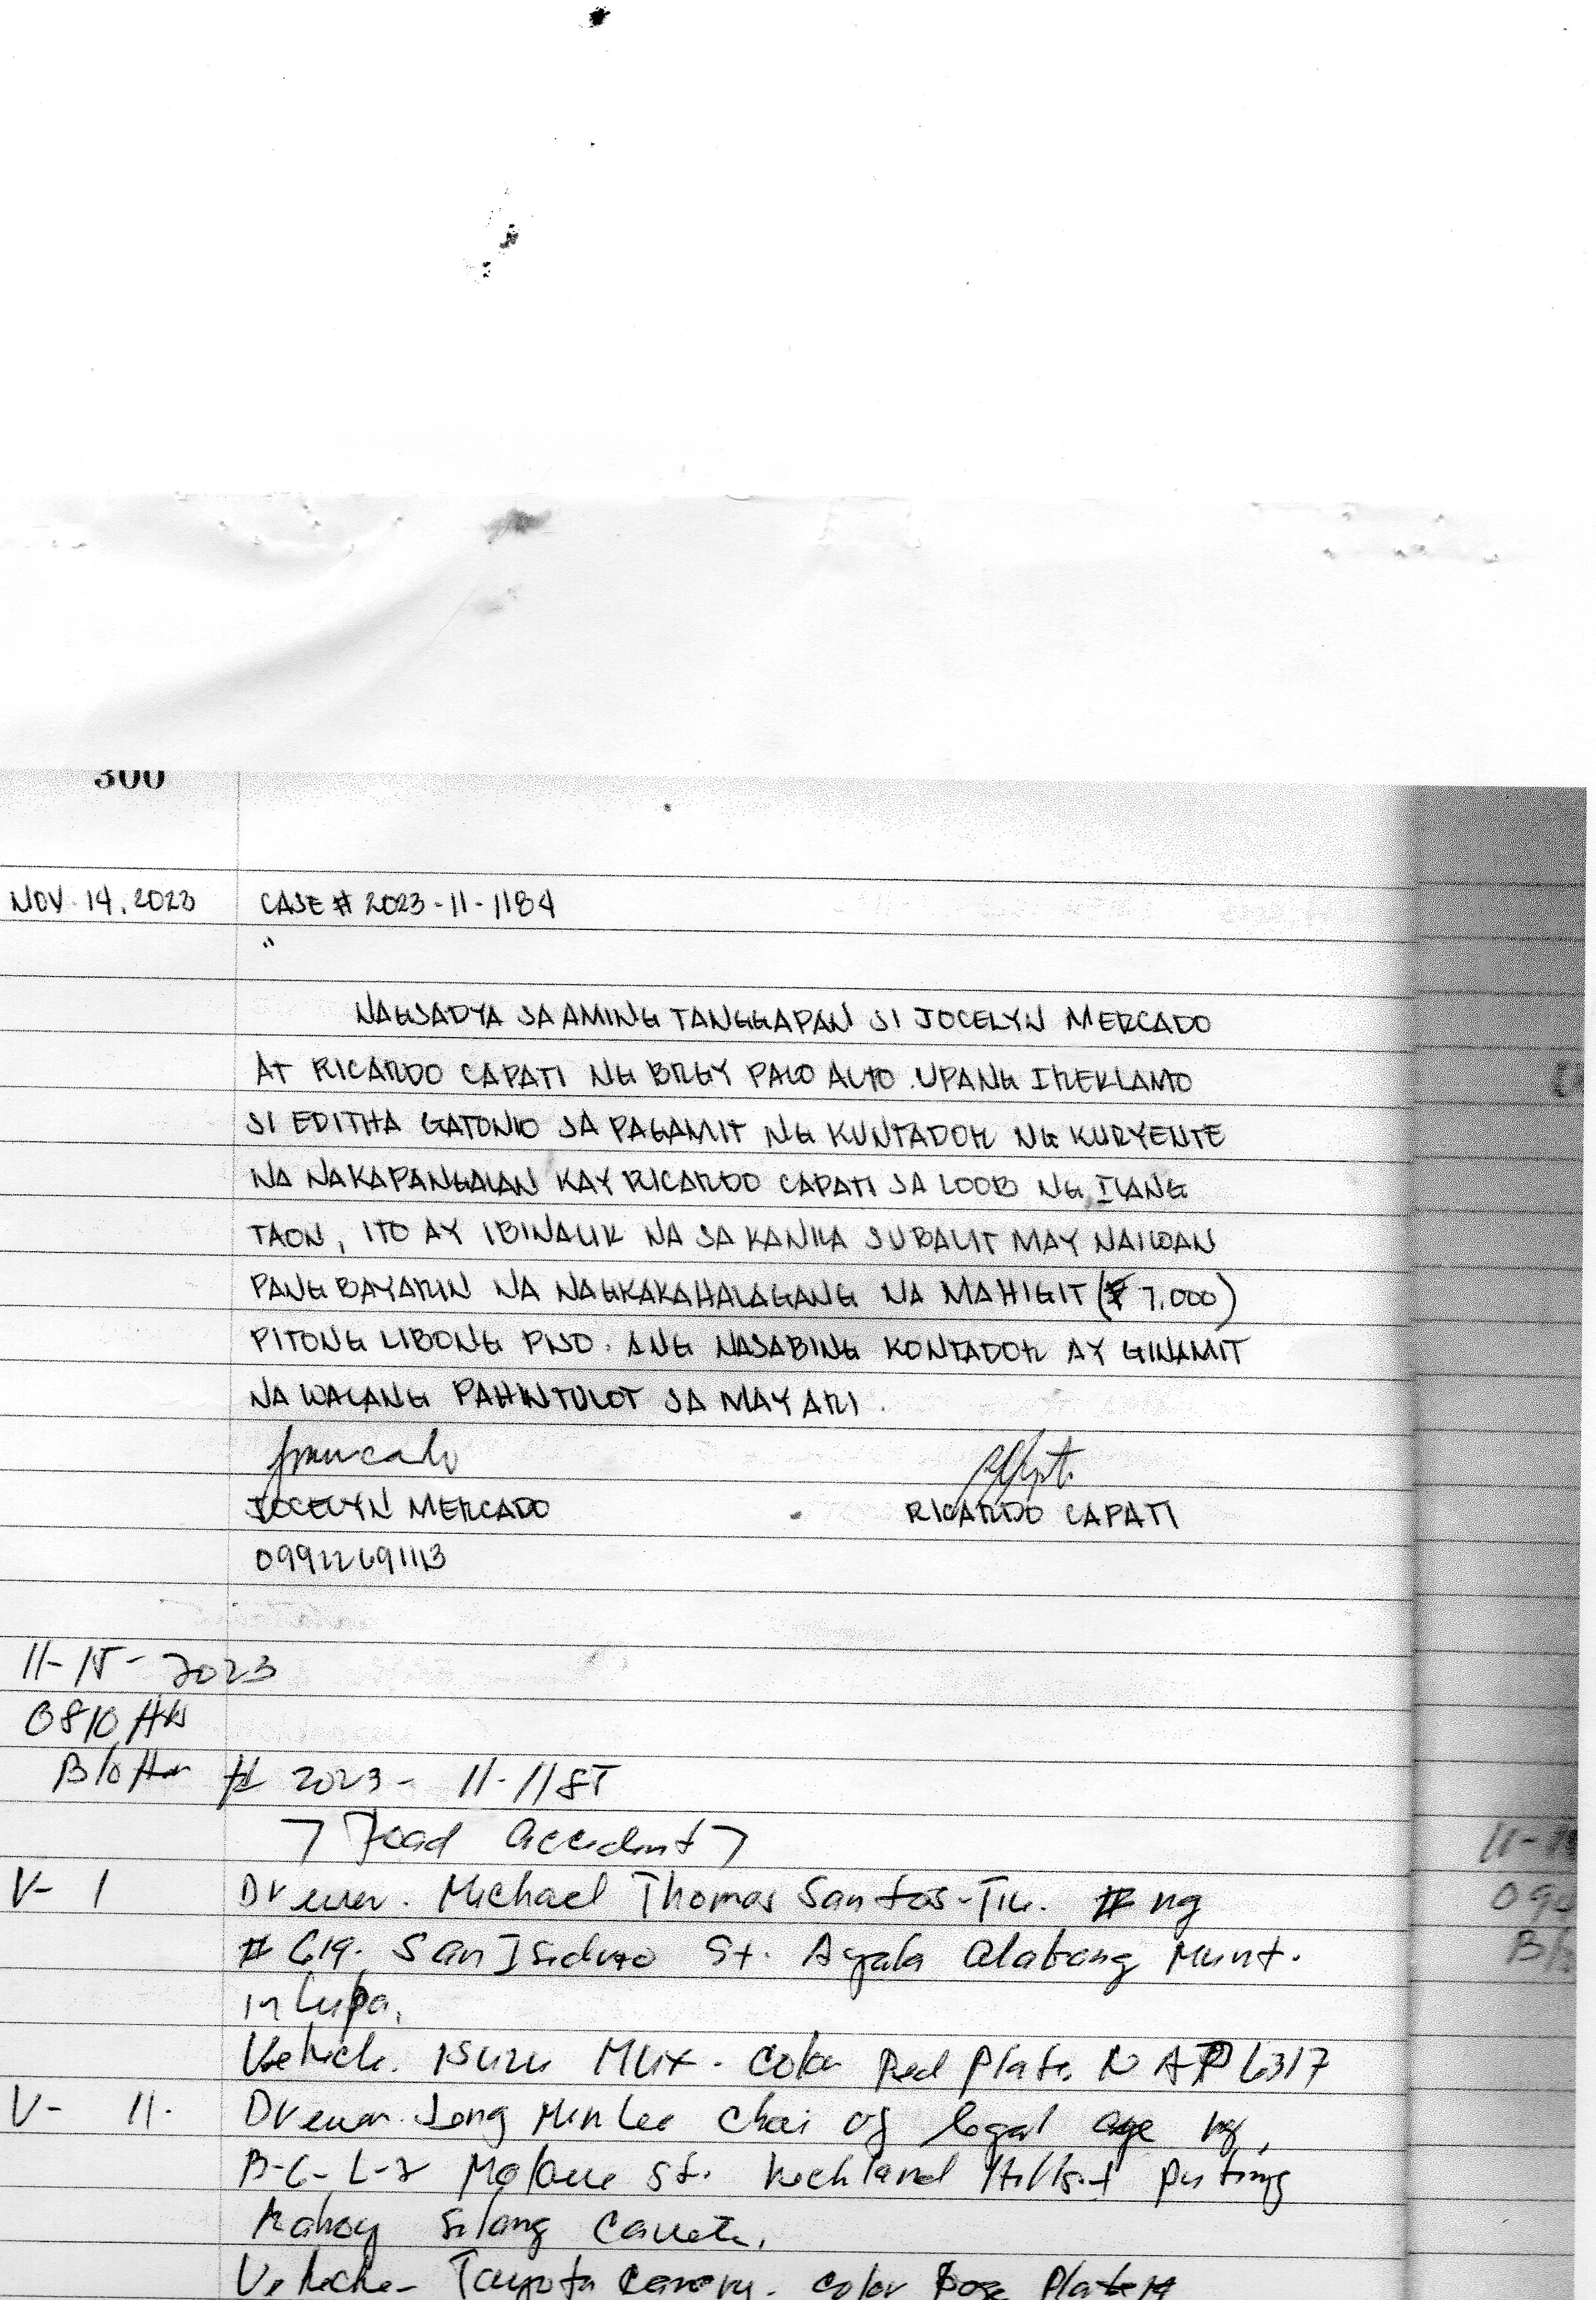 300
NOV. 14, 2023 CASE # 2023-11-1184
"
NAGSADYA SA AMING TANGGAPAN SI JOCELYN MERCADO
AT RICARDO CAPATI NG BRGY PALO ALTO. UPANG IREKLAMO
SI EDITHA GATONIO SA PAGAMIT NG KUNTADOR NG KURYENTE
NA NAKAPANGALAN KAY RICARDO CAPATI SA LOOB NG ILANG
TAON, ITO AY IBINALIK NA SA KANILA SUBALIT MAY NAIWAN
PANG BAYARIN NA NAGKAKAHALAGANG NA MAHIGIT (₱ 7,000)
PITONG LIBONG PISO. ANG NASABING KONTADOR AY GINAMIT
NA WALANG PAHINTULOT SA MAY ARI.
JOCELYN MERCADO RICARDO CAPATI
09922691113
11-15-2023
0810
# 2023-11-118
Road accident
V- 1 Driver. Michael Thomas Santos- # ng
# 619. San Isidro St. Ayala Alabang Munt.
inlupa.
Vehicle. Isuzu Mux. Color Red Plate N AP 6317
V- 11. Driver. Jong Min Lee Choi of legal age ng,
B-6-L-2 St. Hills-1 puting
Kahoy Silang Cavite.
Vehicle- Toyota Camry. Color Plate